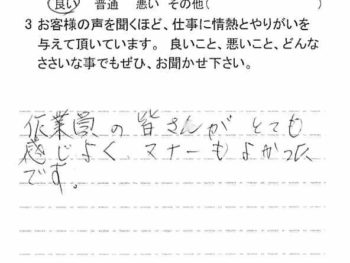 良い 普通 悪い その他( )
3 お客様の声を聞くほど、仕事に情熱とやりがいを
与えて頂いています。 良いこと、悪いこと、どんな
ささいな事でもぜひ、お聞かせ下さい。
作業員の皆さんがとても
感じよく、マナーもよかった
です。